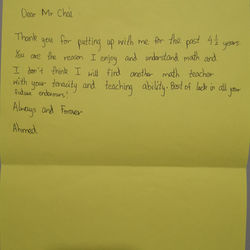 Dear Mr Choi
Thank you for putting up with me for the past 4 ½ years.
You are the reason I enjoy and understand math and
I don't think I will find another math teacher
with your tenacity and teaching ability. Best of luck in all your
future endeavours!
Always and Forever
Ahmed